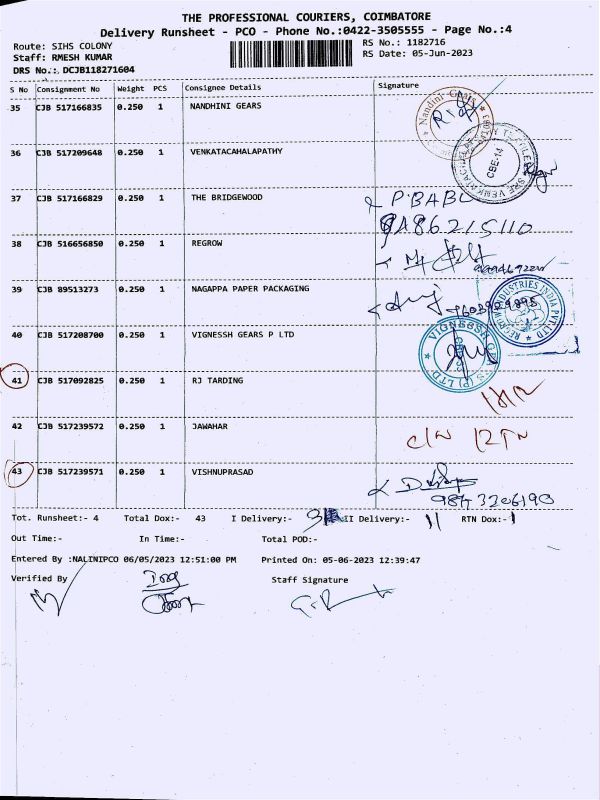 THE PROFESSIONAL COURIERS, COIMBATORE
Delivery Runsheet - PCO - Phone No.:0422-3505555 - Page No.:4
Route: SIHS COLONY RS No.: 1182716
Staff: RMESH KUMAR RS Date: 05-Jun-2023
DRS No.: DCJB118271604
S No Consignment No Weight PCS Consignee Details Signature
35 CJB 517166835 0.250 1 NANDHINI GEARS
36 CJB 517209648 0.250 1 VENKATACAHALAPATHY
CBE-14
37 CJB 517166829 0.250 1 THE BRIDGEWOOD P.BABU
9486215110
38 CJB 516656850 0.250 1 REGROW
39 CJB 89513273 0.250 1 NAGAPPA PAPER PACKAGING
40 CJB 517208700 0.250 1 VIGNESSH GEARS P LTD
41 CJB 517092825 0.250 1 RJ TARDING
42 CJB 517239572 0.250 1 JAWAHAR
43 CJB 517239571 0.250 1 VISHNUPRASAD
Tot. Runsheet:- 4 Total Dox:- 43 I Delivery:- II Delivery:- 11 RTN Dox:- 1
Out Time:- In Time:- Total POD:-
Entered By :NALINIPCO 06/05/2023 12:51:00 PM Printed On: 05-06-2023 12:39:47
Verified By Staff Signature